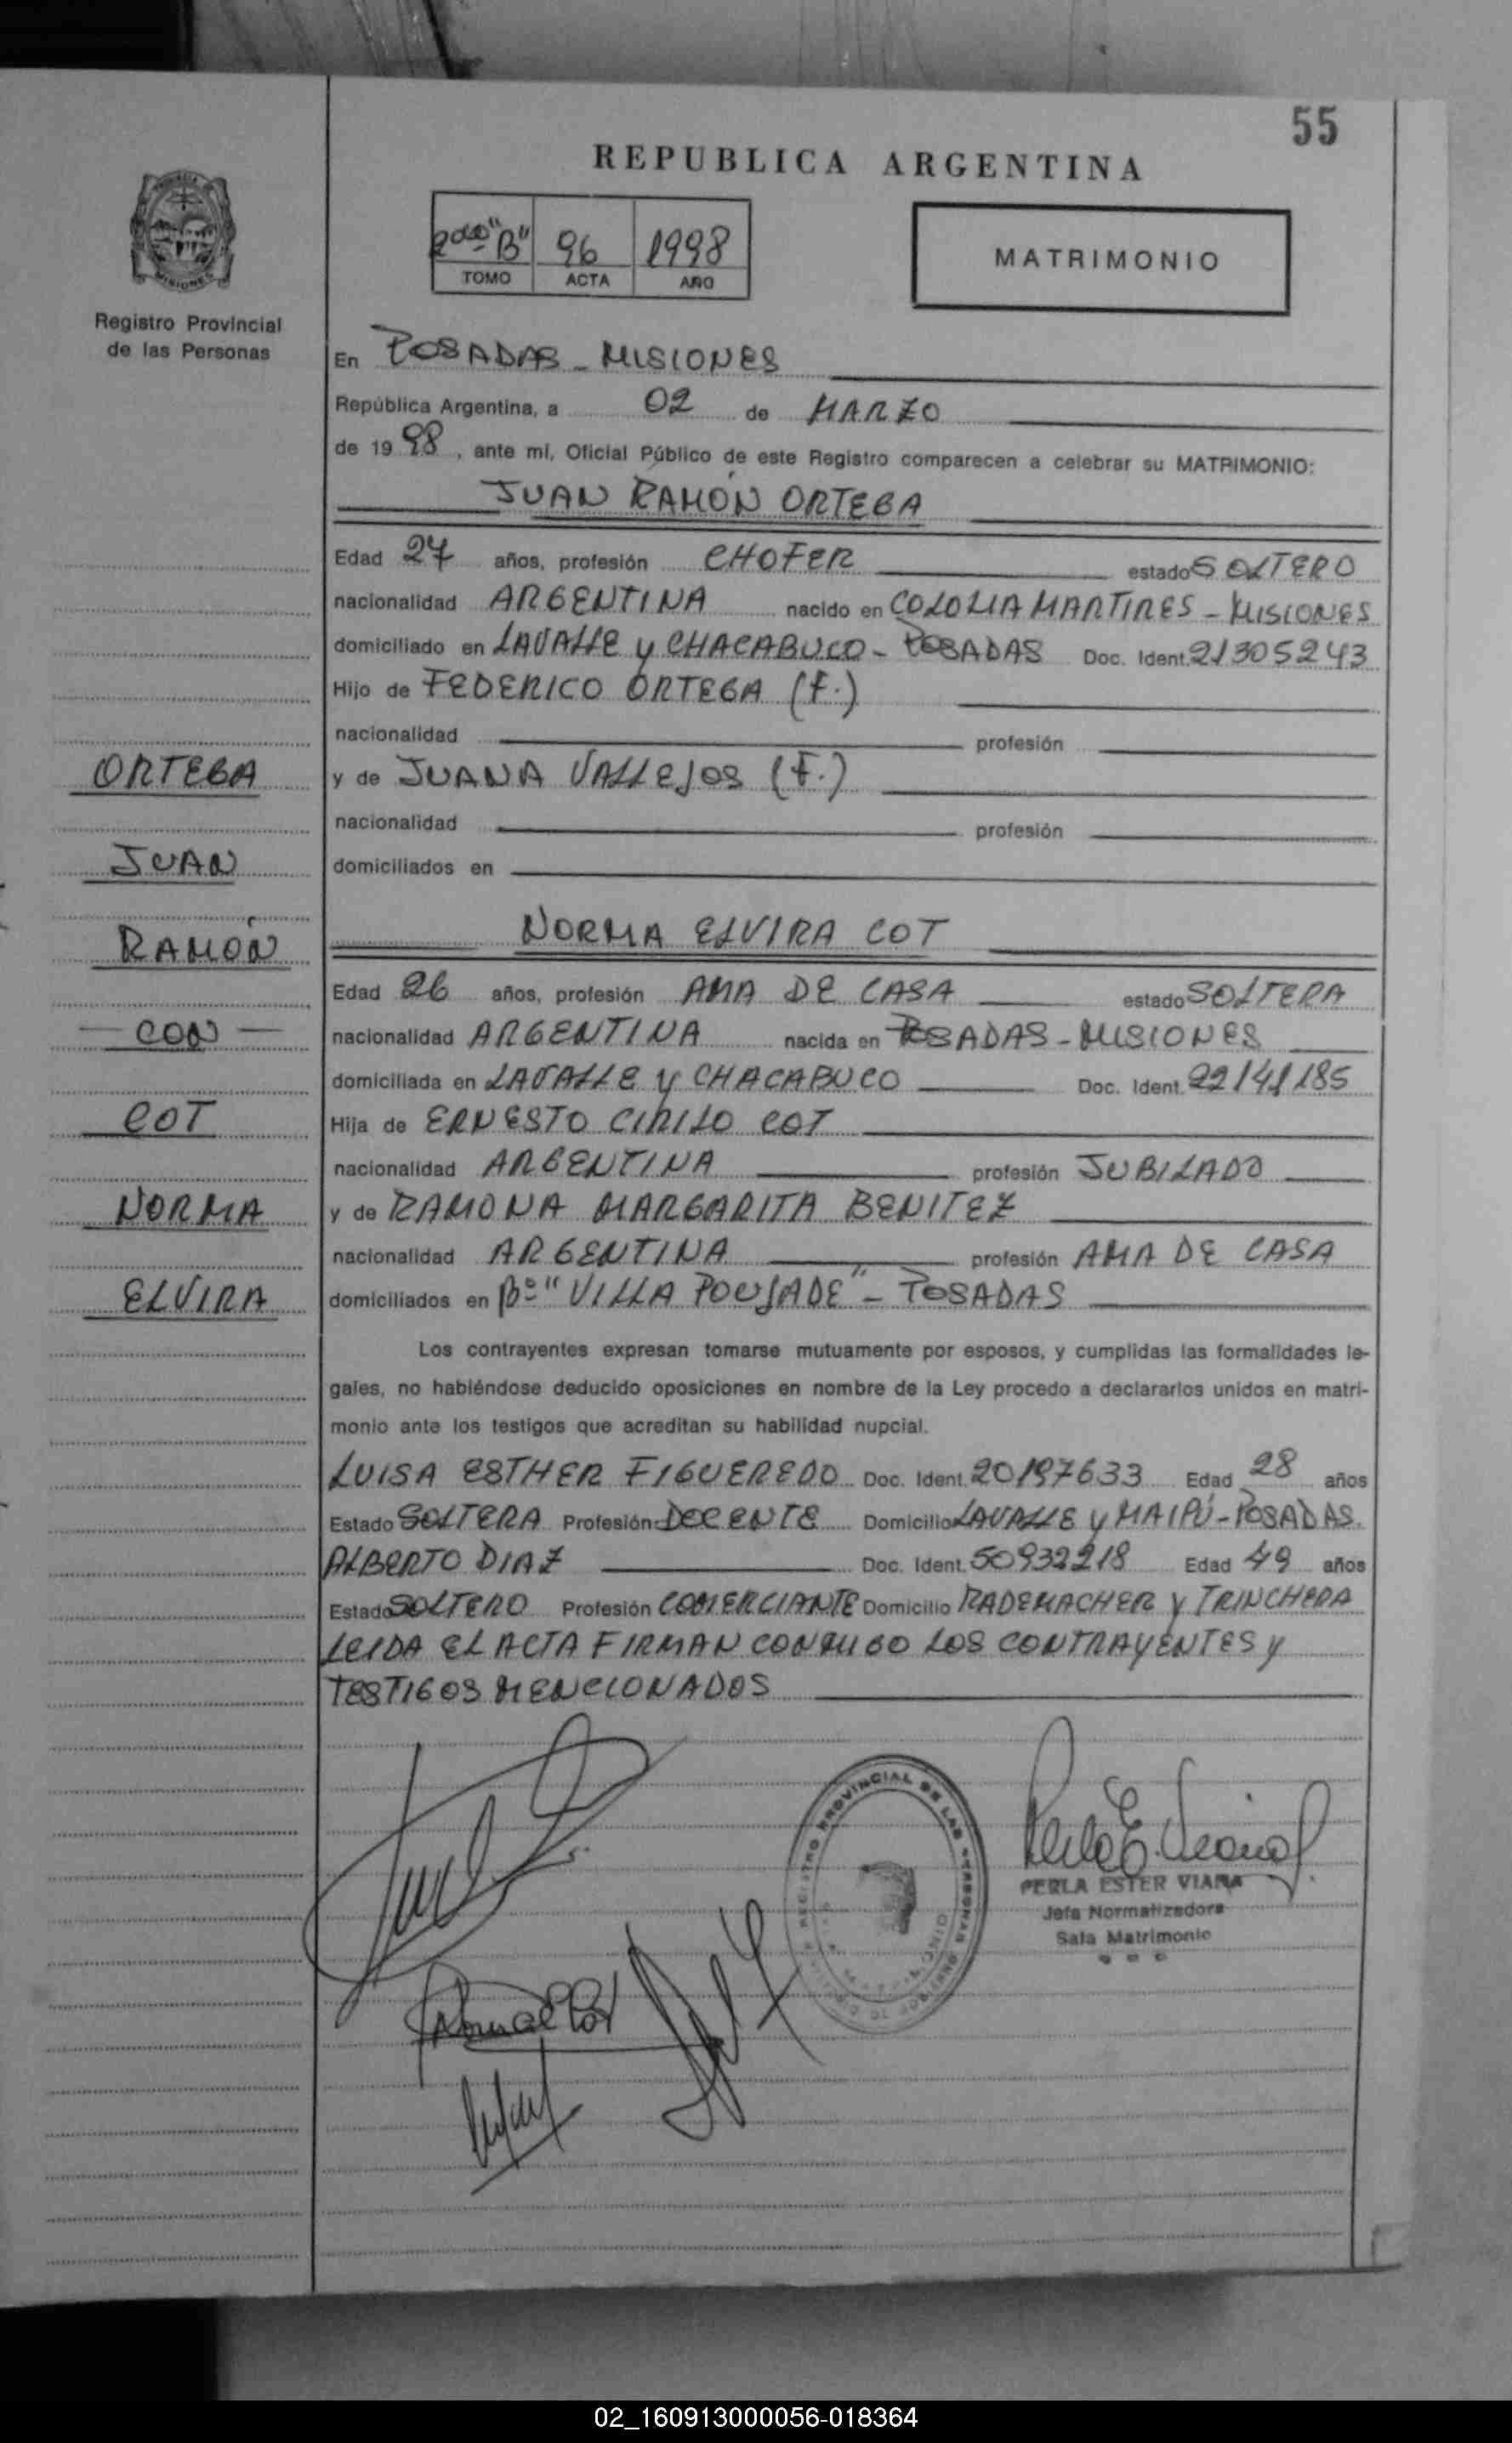 55
REPUBLICA ARGENTINA
2do "B" 96 1998
TOMO ACTA AÑO
MATRIMONIO
Registro Provincial
de las Personas
En POSADAS - MISIONES
República Argentina, a 02 de MARZO
de 19 98, ante mí, Oficial Público de este Registro comparecen a celebrar su MATRIMONIO:
JUAN RAMÓN ORTEGA
Edad 27 años, profesión CHOFER estado SOLTERO
nacionalidad ARGENTINA nacido en COLONIA MARTIRES - MISIONES
domiciliado en LAVALLE y CHACABUCO - POSADAS Doc. Ident. 21305243
Hijo de FEDERICO ORTEGA (F.)
nacionalidad profesión
y de JUANA VALLEJOS (F.)
nacionalidad profesión
domiciliados en
NORMA ELVIRA COT
Edad 26 años, profesión AMA DE CASA estado SOLTERA
nacionalidad ARGENTINA nacida en POSADAS - MISIONES
domiciliada en LAVALLE y CHACABUCO Doc. Ident. 22141185
Hija de ERNESTO CIRILO COT
nacionalidad ARGENTINA profesión JUBILADO
y de RAMONA MARGARITA BENITEZ
nacionalidad ARGENTINA profesión AMA DE CASA
domiciliados en Bº "VILLA POUJADE" - POSADAS
ORTEGA
JUAN
RAMÓN
- CON -
COT
NORMA
ELVIRA
Los contrayentes expresan tomarse mutuamente por esposos, y cumplidas las formalidades le-
gales, no habiéndose deducido oposiciones en nombre de la Ley procedo a declararlos unidos en matri-
monio ante los testigos que acreditan su habilidad nupcial.
LUISA ESTHER FIGUEREDO Doc. Ident. 20197633 Edad 28 años
Estado SOLTERA Profesión DOCENTE Domicilio LAVALLE y MAIPÚ - POSADAS.
ALBERTO DIAZ Doc. Ident. 50932218 Edad 49 años
Estado SOLTERO Profesión COMERCIANTE Domicilio RADEMACHER y TRINCHERA
LEIDA EL ACTA FIRMAN CONMIGO LOS CONTRAYENTES y
TESTIGOS MENCIONADOS
REGISTRO PROVINCIAL DE LAS PERSONAS
PERLA ESTER VIANA
Jefa Normalizadora
Sala Matrimonio
02_160913000056-018364